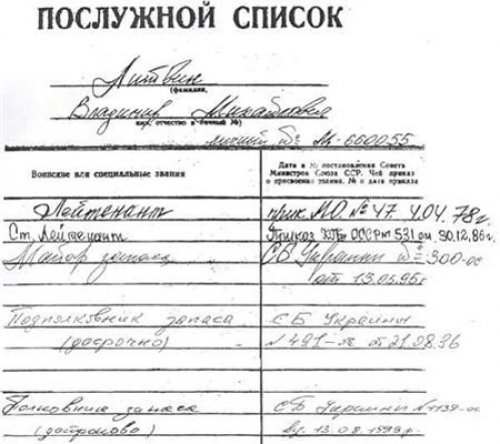 ПОСЛУЖНОЙ СПИСОК
Литвин
(фамилия,
Владимир Михайлович
имя, отчество и личный №)
личный № М-660055
Воинские или специальные звания
Дата и № постановления Совета
Министров Союза ССР. Чей приказ
о присвоении звания, № и дата приказа
Лейтенант
прик. М.О. № 47 4.04.78г.
Ст. Лейтенант
Приказ КГБ СССР № 531 от 30.12.86г.
Майор запаса
СБ Украины № 300-ос
от 13.05.95г.
Подполковник запаса
СБ Украины
(досрочно)
от 21.08.96
Полковник запаса
СБ Украины
(достроково)
від 13.08.1999р.